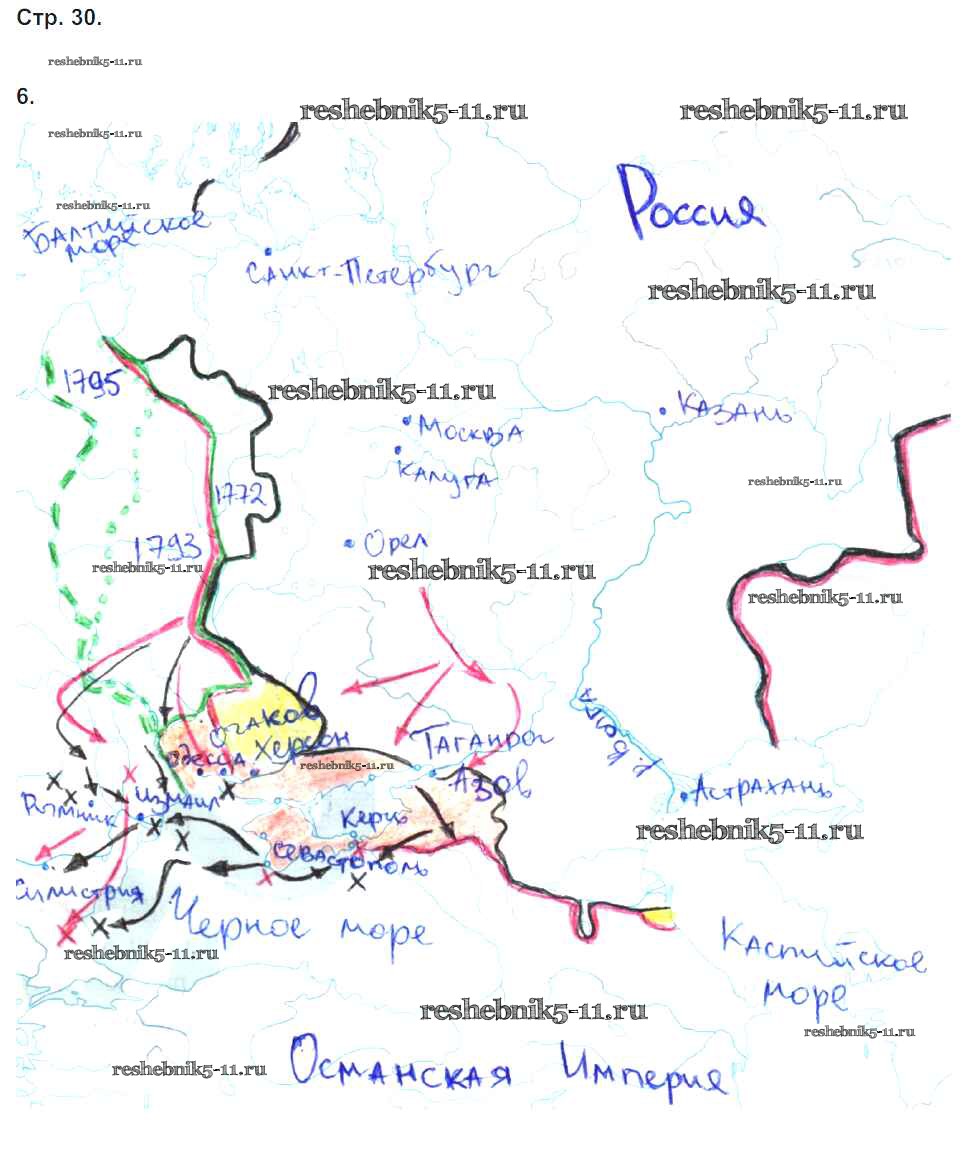 Стр. 30.
reshebnik5-11.ru
6.
reshebnik5-11.ru
reshebnik5-11.ru
reshebnik5-11.ru
reshebnik5-11.ru
Россия
Балтийское
море
Санкт-Петербург
reshebnik5-11.ru
1795
reshebnik5-11.ru
Казань
Москва
Калуга
reshebnik5-11.ru
1772
1793
Орел
reshebnik5-11.ru
reshebnik5-11.ru
reshebnik5-11.ru
Очаков
р. Волга
Одесса Херсон
Таганрог
reshebnik5-11.ru
Азов
Астрахань
Измаил
Рымник
Керчь
reshebnik5-11.ru
Севастополь
Силистрия
Черное море
reshebnik5-11.ru
Каспийское
море
reshebnik5-11.ru
reshebnik5-11.ru
Османская Империя
reshebnik5-11.ru